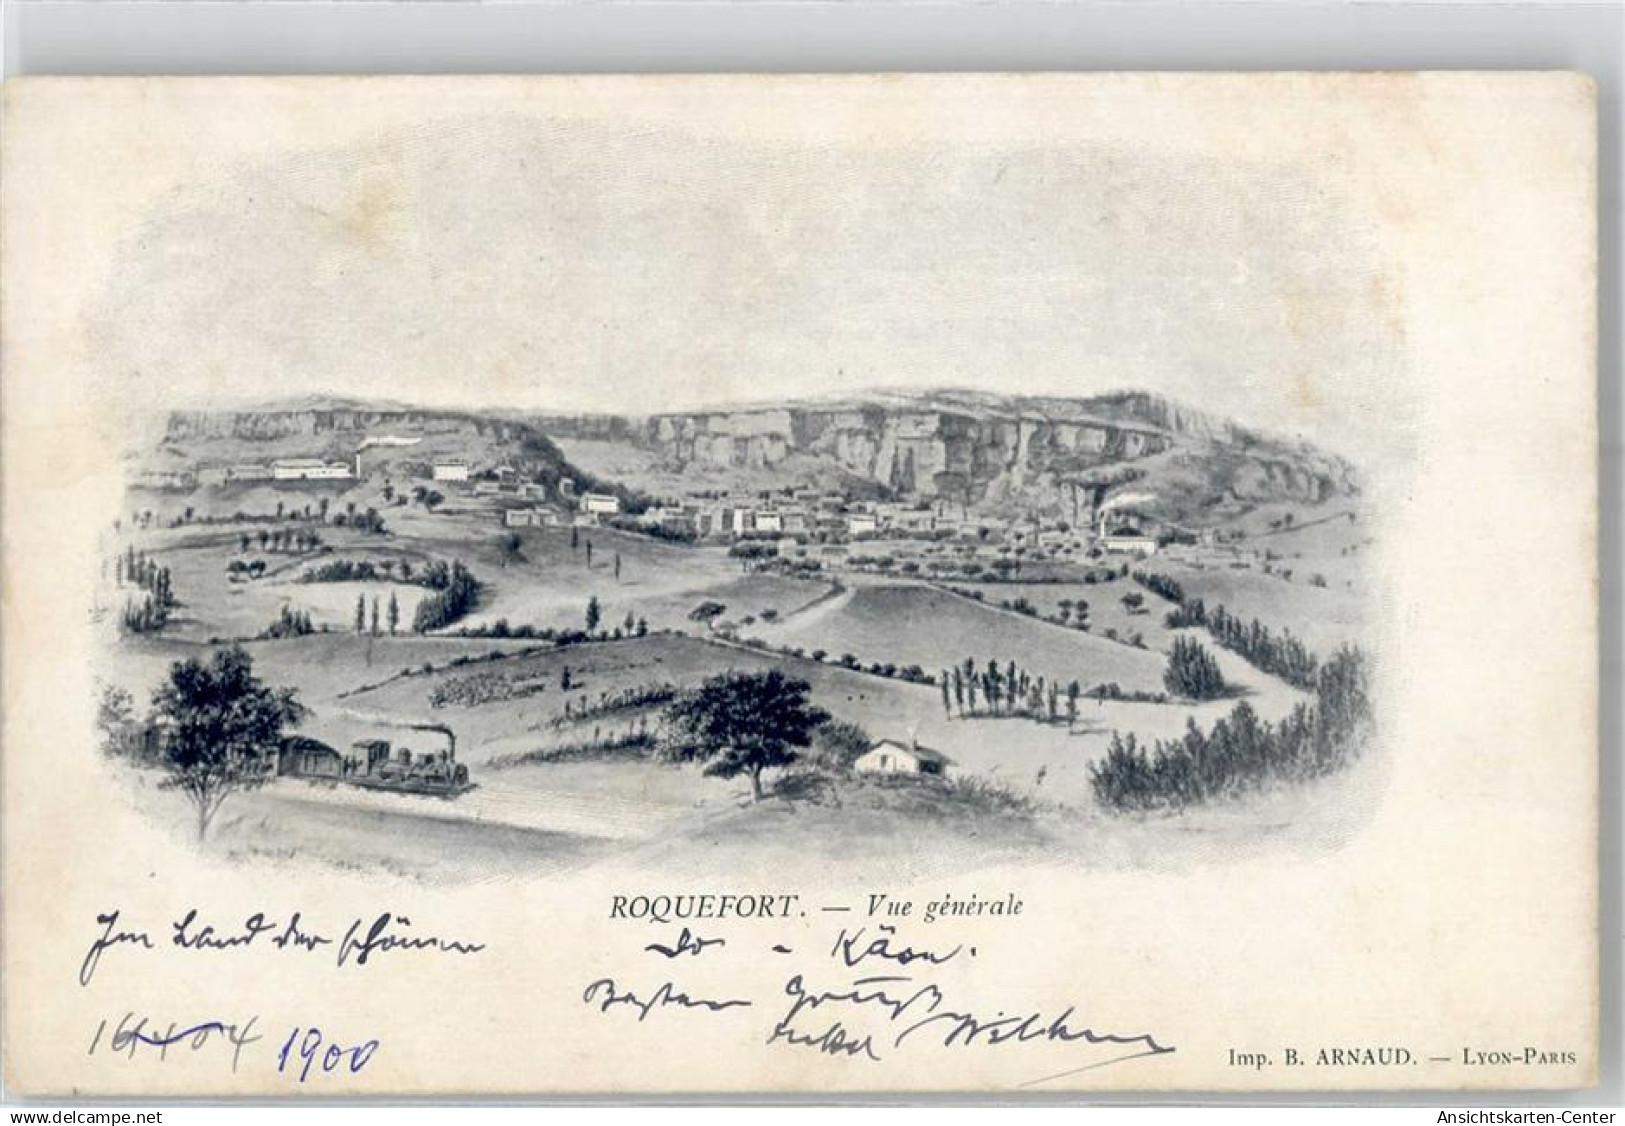 ROQUEFORT. — Vue générale
Im Land der schönen do - Käse.
Besten Gruß
Wilhelm
1900
Imp. B. ARNAUD. — LYON-PARIS
oldthing.de
Ansichtskarten-Center